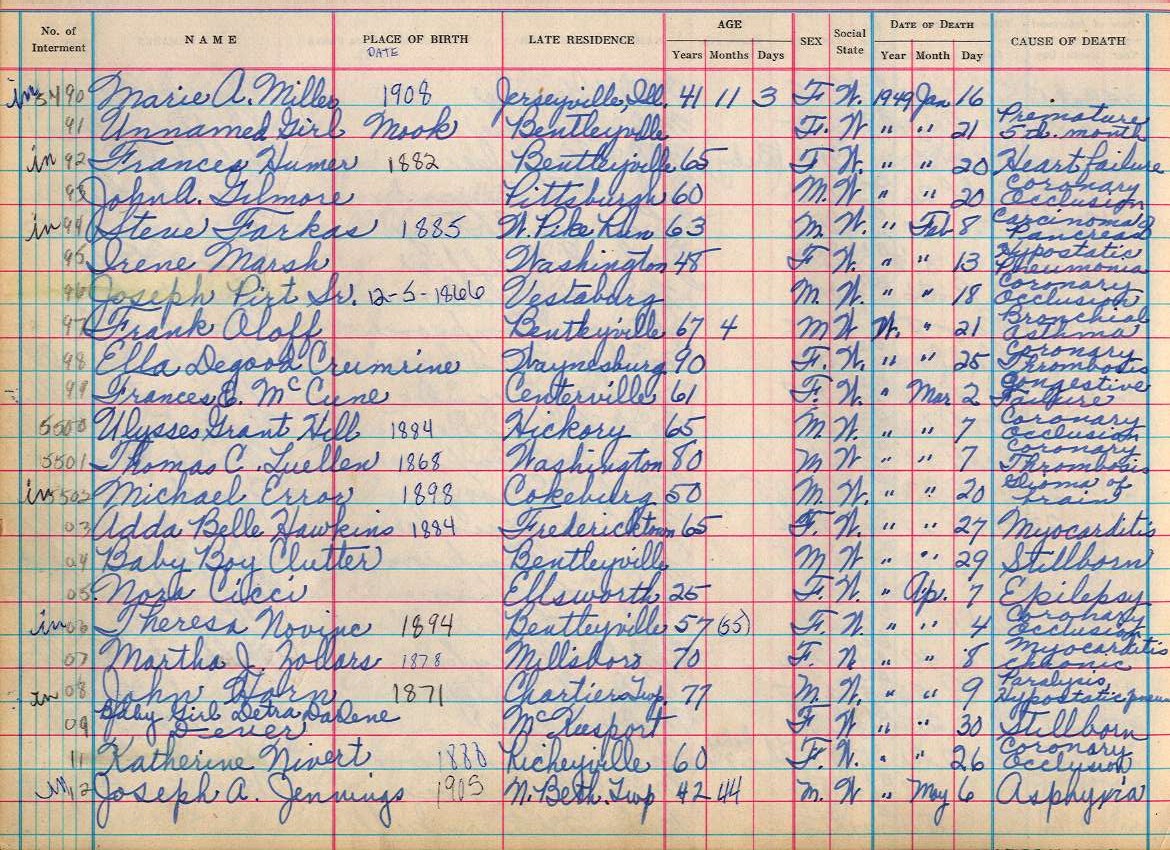 No. of Interment NAME PLACE OF BIRTH DATE LATE RESIDENCE AGE Years Months Days SEX Social State DATE OF DEATH Year Month Day CAUSE OF DEATH
in 5490 Marie A. Miller 1908 Jerseyville, Ill. 41 11 3 F W. 1949 Jan 16
91 Unnamed Girl Mook Bentleyville F. W " " 21 Premature 5 th. month
in 92 Frances Humer 1882 Bentleyville 65 F W. " " 20 Heart failure
93 John A. Gilmore Pittsburgh 60 M. W. " " 20 Coronary Occlusion
in 94 Steve Farkas 1885 W. Pike Run 63 M. W. " Feb 8 Carcinoma Pancreas
95 Irene Marsh Washington 48 F W. " " 13 Hypostatic Pneumonia
96 Joseph Pirt Sr. 12-5-1866 Vestaburg M. W. " " 18 Coronary Occlusion
97 Frank Oloff Bentleyville 67 4 M W " 21 Bronchial asthma
98 Ella Degood Crumrine Waynesburg 90 F. W. " " 25 Coronary Thrombosis
99 Frances McCune Centerville 61 F. W. " Mar 2 Congestive Failure
5500 Ulysses Grant Hill 1884 Hickory 65 M. W. " " 7 Coronary occlusion
5501 Thomas C. Luellen 1868 Washington 80 M W. " " 7 Coronary Thrombosis
in 5502 Michael Error 1898 Cokeburg 50 M. W. " " 20 Glioma of brain
03 Adda Belle Hawkins 1884 Fredericktown 65 F. W. " " 27 Myocarditis
04 Baby Boy Clutter Bentleyville M W " " 29 Stillborn
05 Nora Cicci Ellsworth 25 F. W. " Ap. 7 Epilepsy
in 06 Theresa Novinc 1894 Bentleyville 57 (55) F. W. " " 4 Coronary Occlusion
07 Martha J. Zollars 1878 Millsboro 70 F. W " " 8 Myocarditis chronic
in 08 John Horn 1871 Chartiers Twp. 77 M. W. " " 9 Paralysis, Hypostatic pneu
09 Baby Girl Detra DaLene Fever McKeesport F W " " 30 Stillborn
11 Katherine Nivert 1888 Richeyville 60 F. W. " " 26 Coronary Occlusion
in 12 Joseph A. Jennings 1905 N. Beth. Twp 42 44 M. W " May 6 Asphyxia